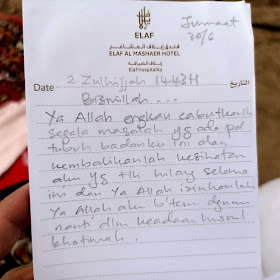 ELAF
فندق إيلاف المشاعر
ELAF AL MASHAER HOTEL
إيلاف الضيافة
Elaf Hospitality
Jumaat
30/6
Date 2 Zulhijjah 1443H التاريخ
Bismillah ...
Ya Allah engkau cabutkanlah
segala masalah yg ada pd
tubuh badanku ini dan
kembalikanlah kesihatan
aku yg tlh hilang selama
ini dan Ya Allah izinkanlah
Ya Allah aku b'temu dgnmu
nanti dlm keadaan husnul
khotimah.